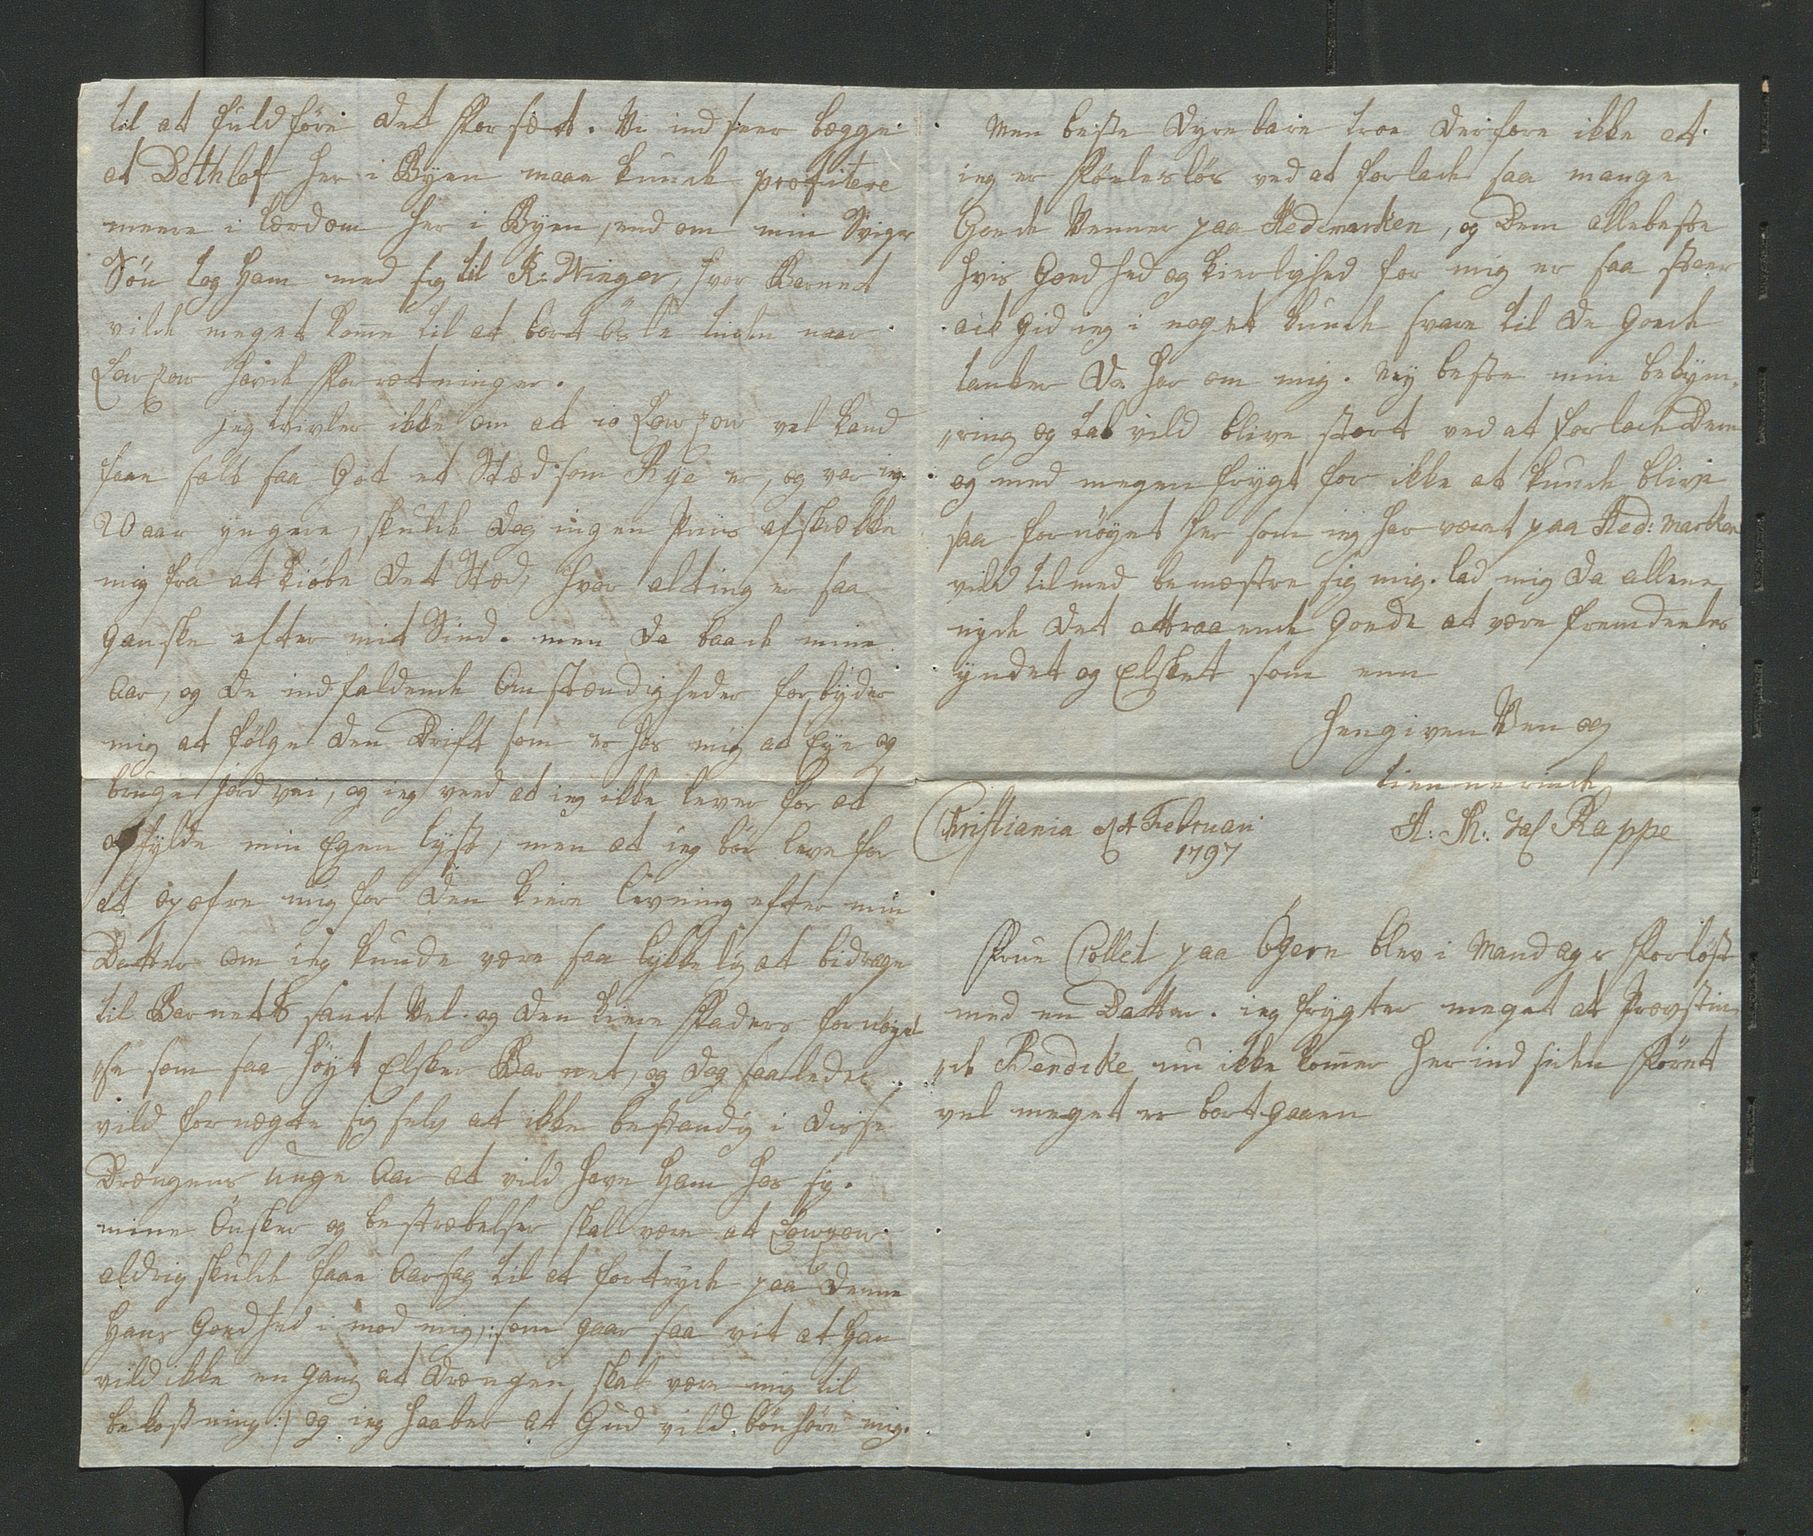 til at fuldføre det Forsæt. Vi indseer begge
at Dethlef her i Byen maae kunde profitere
meere i lærdom her i Byen, end om min Sviger
Søn tog Ham med sig til K: Winger, hvor Barnet
vilde meget kome til at bort ösle tiden naar
Lowzow havde Forrætninger.
jeg tvivler ikke om at jo Lowzow vel kand
faae sålt saa Got et Stæd som Rye er, og var ieg
20 aar yngere, skulde dog ingen Priis afskrække
mig fra at kiøbe det Stæd, hvor alting er saa
ganske efter mit Sind. men da baade mine
Aar, og de indfaldende Omstændigheder forbyder
mig at følge den Drift som er hos mig at Eye og
bruge jordvei, og ieg veed at ieg ikke lever for at
opfylde min Egen lyst, men at ieg bör leve for
at opofre mig for den kiere levning efter min
Datter om ieg kunde være saa lykkelig at bidrage
til Barnets sande Vel og den kiere Faders fornöyel
"se som saa höyt Elsker Barnet, og dog saaledes
vild fornegte sig selv at ikke bestandig i disse
Drængens unge Aar at vild have Ham hos sig.
mine Önsker og bestræbelser skal være at Lowzow
aldrig skulde faae Aarsag til at fortryde paa denne
Hans Goedhed imod mig /: som gaar saa vit at Han
vild ikke en gang at Drængen skal være mig til
bekostning :/ og ieg haaber at Gud vild bönhöre mig.
Men beste Dyrebare troe derfore ikke at
ieg er Föelesløs ved at forlade saa mange
Goede Venner paa Hedemarken, og Dem allebeste
hvis Goedhed og kierlighed for mig er saa stoer
ack Gid ieg i noget kunde svare til de Goede
tanker de har om mig. Ney beste min bekÿm,
"ring og tab vild blive stort ved at forlade Dem
og med megen frygt for ikke at kunde blive
saa fornöyet her som ieg har været paa Hed: marken
vild tilmed bemæstre sig mig. lad mig da allene
nyde det attraaende Goede at være fremdeeles
yndet og Elsket som enn
hengiven Ven og
tiennerinde
Christiania d 4 Februari
1797
A: M: Sal Rappe
Frue Collet paa Ögern blev i Mandags Forløst
med en Datter. ieg frygter meget at Provstin,
"de Bendeke nu ikke komer her ind siden Föret
vel meget er bortgaaen